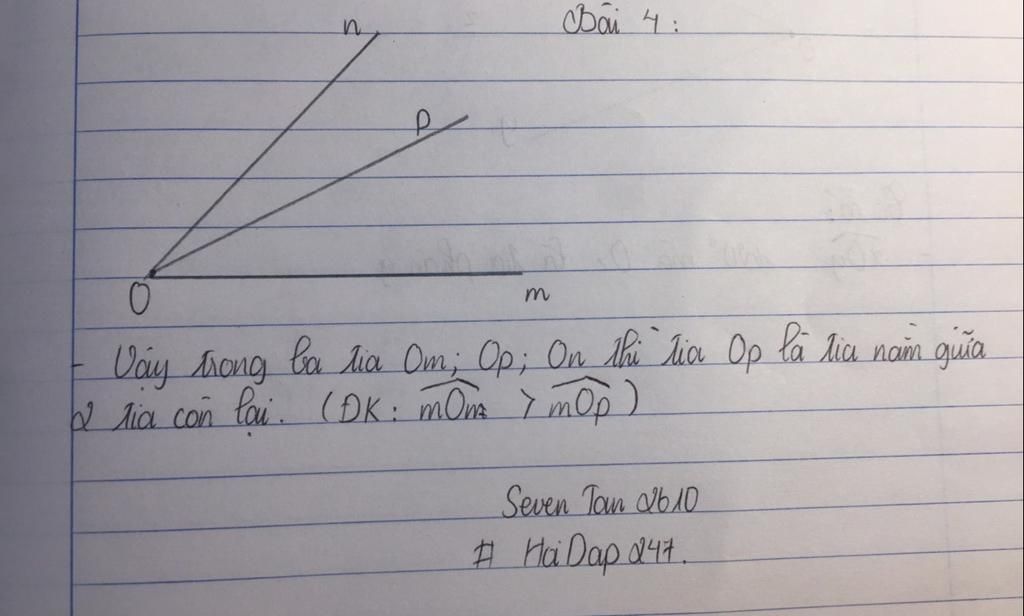 Bài 4 :
n
p
O
m
- Vậy trong ba tia Om; Op; On thì tia Op là tia nằm giữa
2 tia còn lại. (ĐK : mOn > mOp )
Seven Tan 2610
# HoiDap 247.